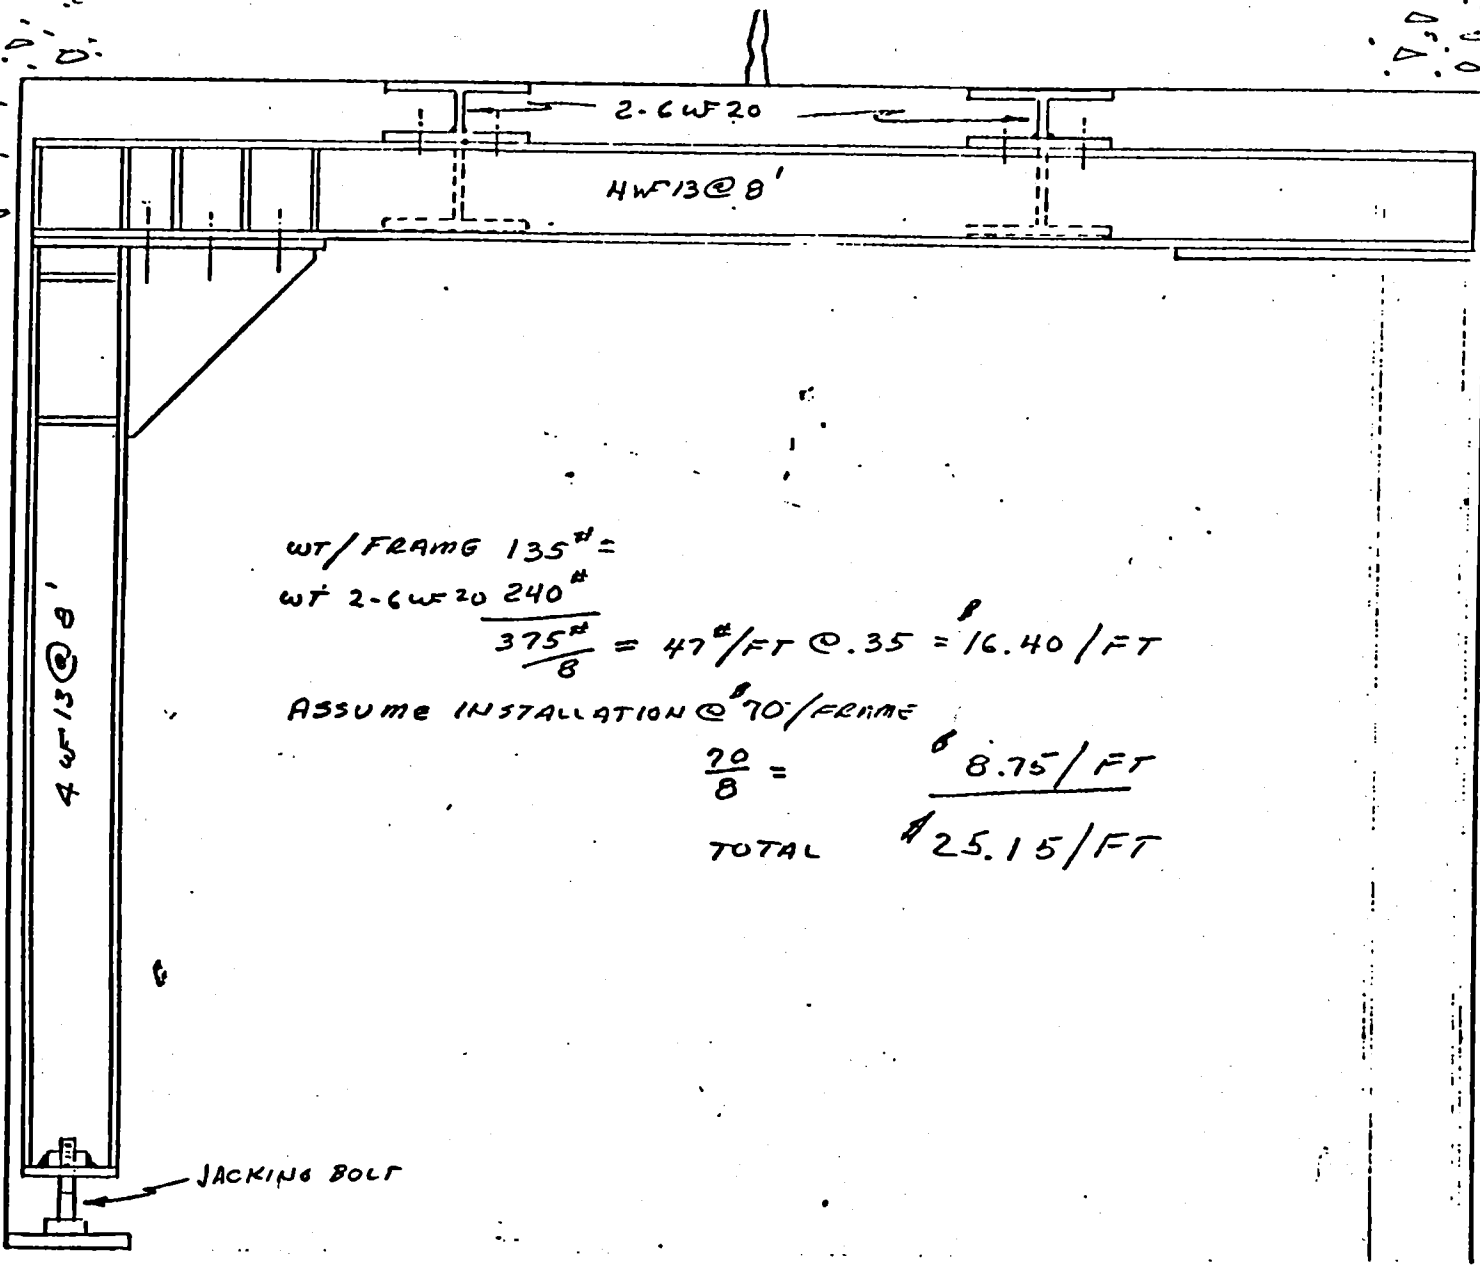 2-6 WF 20
4WF13@8'
4WF13@8'
WT/FRAME 135# =
WT 2-6WF20 240#
375#/8 = 47#/FT @.35 = $16.40/FT
ASSUME INSTALLATION @ $70/FRAME
70/8 = $8.75/FT
TOTAL $25.15/FT
JACKING BOLT